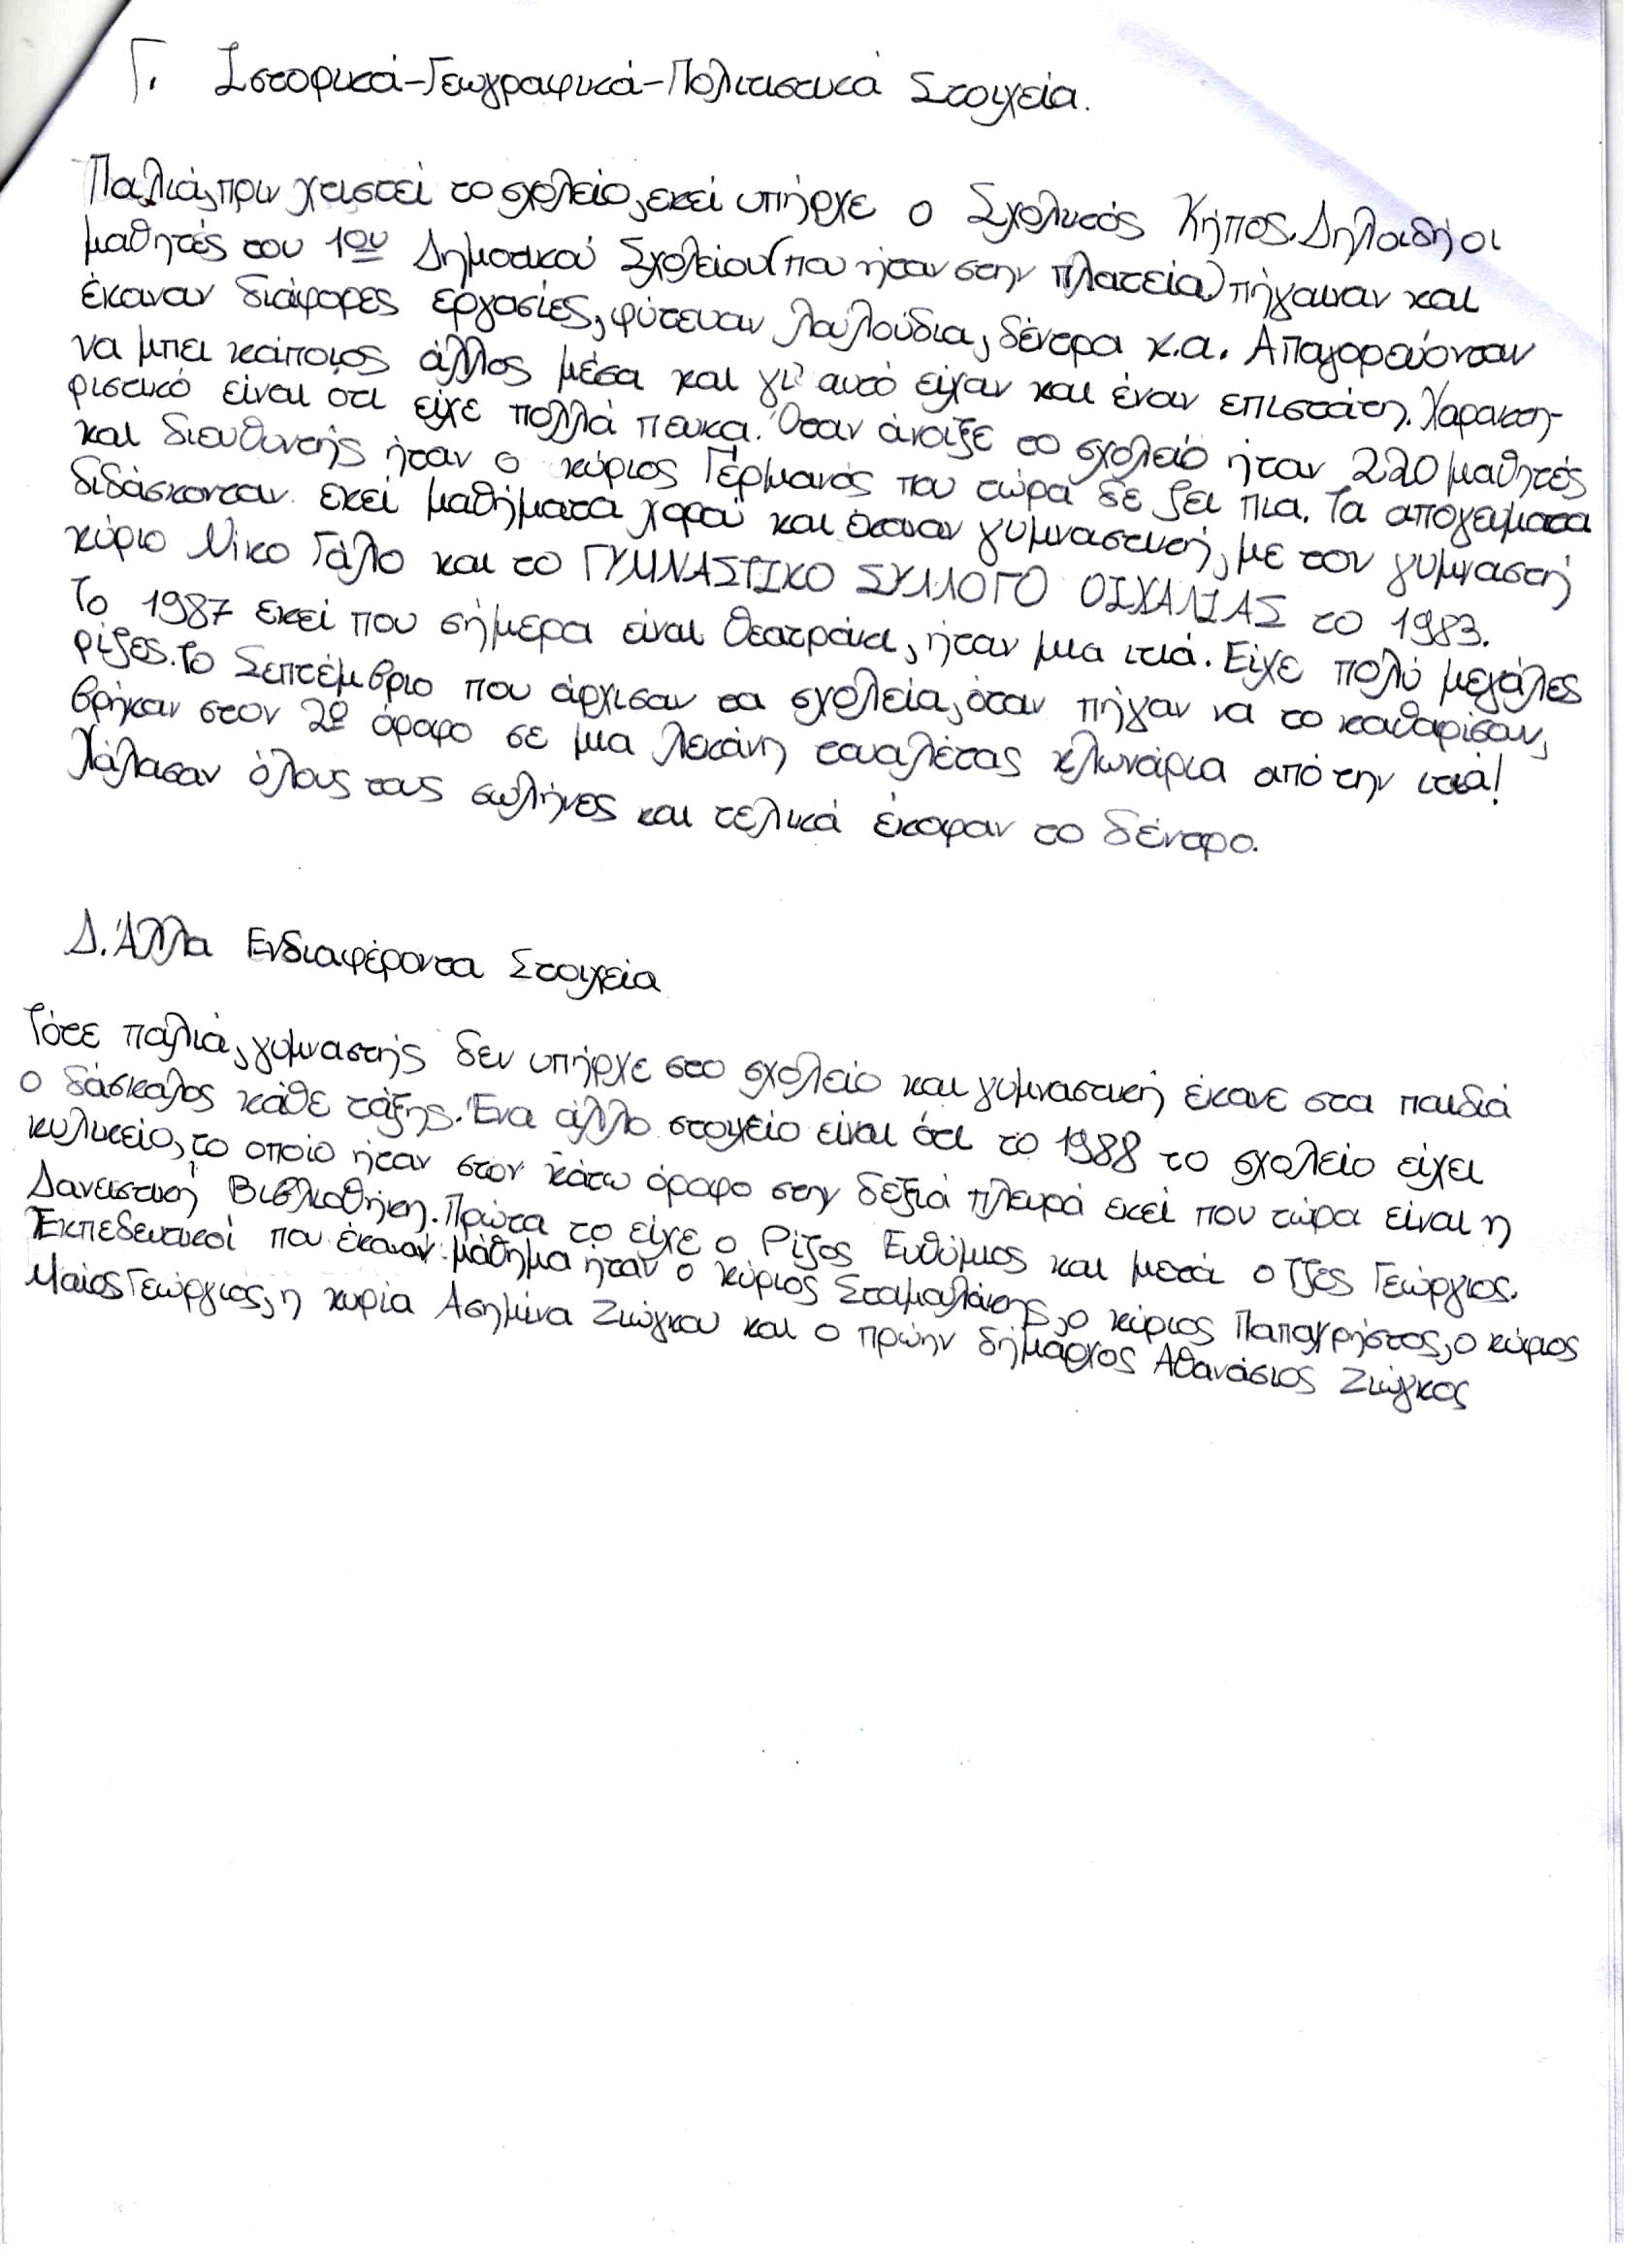 Γ. Ιστορικά-Γεωγραφικά-Πολιτιστικά Στοιχεία.
Παλιά, πριν χτιστεί το σχολείο, εκεί υπήρχε ο Σχολικός Κήπος. Δηλαδή οι
μαθητές του 1ου Δημοτικού Σχολείου (που ήταν στην πλατεία) πήγαιναν και
έκαναν διάφορες εργασίες, φύτευαν λουλούδια, δέντρα κ.α. Απαγορεύονταν
να μπει κάποιος άλλος μέσα και γι' αυτό είχαν και έναν επιστάτη. Χαρακτη-
ριστικό είναι οτι είχε πολλά πευκα. Όταν άνοιξε το σχολείο ήταν 220 μαθητές
και διευθυντής ήταν ο κύριος Γερμανός που τώρα δε ζει πια. Τα απογευματα
διδάσκονταν εκεί μαθήματα χορού και έκαναν γυμναστική, με τον γυμναστή
κύριο Νίκο Γάλο και το ΓΥΜΝΑΣΤΙΚΟ ΣΥΛΛΟΓΟ ΟΙΧΑΛΙΑΣ το 1983.
Το 1987 εκεί που σήμερα είναι θεατράκι, ήταν μια ιτιά. Είχε πολύ μεγάλες
ρίζες. Το Σεπτέμβριο που άρχισαν τα σχολεία, όταν πήγαν να το καθαρίσουν,
βρήκαν στον 2ο όροφο σε μια λεκάνη τουαλέτας κλωνάρια από την ιτιά!
Χάλασαν όλους τους σωλήνες και τελικά έκοψαν το δέντρο.
Δ. Άλλα Ενδιαφέροντα Στοιχεία
Τότε παλιά, γυμναστής δεν υπήρχε στο σχολείο και γυμναστική έκανε στα παιδιά
ο δάσκαλος κάθε τάξης. Ένα άλλο στοιχείο είναι ότι το 1988 το σχολείο είχει
κυλικείο, το οποίο ήταν στον κάτω όροφο στην δεξιά πλευρά εκεί που τώρα είναι η
Δανειστική Βιβλιοθήκη. Πρώτα το είχε ο Ρίζος Ευθύμιος και μετά ο Τζες Γεώργιος.
Εκπεδευτικοί που έκαναν μάθημα ήταν ο κύριος Σταμουλάκης, ο κύριος Παπαχρήστος, ο κύριος
Μαίος Γεώργιος, η κυρία Ασημίνα Ζιώγκου και ο πρώην δήμαρχος Αθανάσιος Ζιώγκος